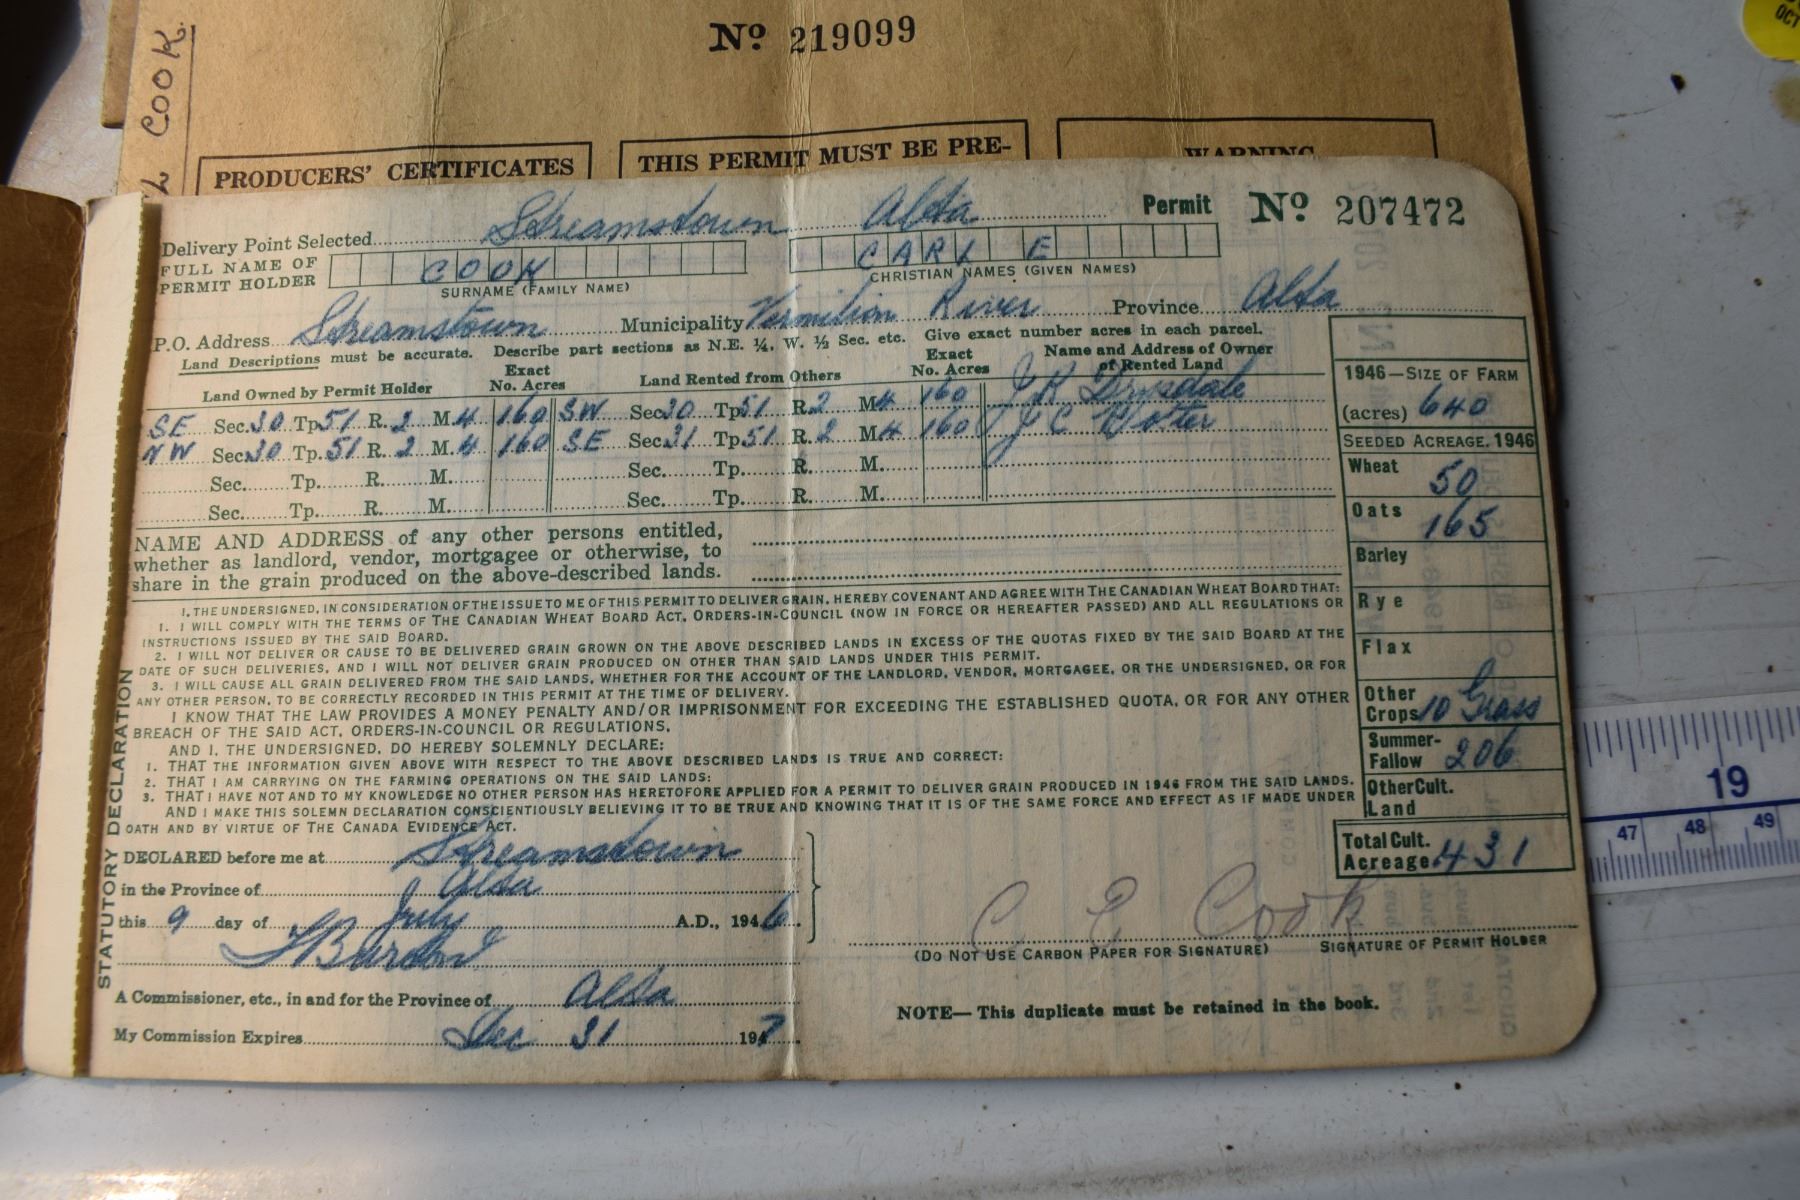 COOK
Nº 219099
PRODUCERS' CERTIFICATES
THIS PERMIT MUST BE PRE-
WARNING
Permit Nº 207472
Delivery Point Selected Streamstown Alta
FULL NAME OF PERMIT HOLDER COOK CARL E
SURNAME (FAMILY NAME) CHRISTIAN NAMES (GIVEN NAMES)
P.O. Address Streamstown Municipality Vermilion River Province Alta
Land Descriptions must be accurate. Describe part sections as N.E. ¼, W. ½ Sec. etc. Give exact number acres in each parcel.
Land Owned by Permit Holder Exact No. Acres Land Rented from Others Exact No. Acres Name and Address of Owner of Rented Land
SE Sec. 30 Tp. 51 R. 2 M. 4 160 SW Sec. 30 Tp. 51 R. 2 M. 4 160 J K Drysdale
NW Sec. 30 Tp. 51 R. 2 M. 4 160 SE Sec. 31 Tp. 51 R. 2 M. 4 160 J C
Sec. Tp. R. M. Sec. Tp. R. M.
Sec. Tp. R. M. Sec. Tp. R. M.
NAME AND ADDRESS of any other persons entitled,
whether as landlord, vendor, mortgagee or otherwise, to
share in the grain produced on the above-described lands.
1946—SIZE OF FARM
(acres) 640
SEEDED ACREAGE, 1946
Wheat 50
Oats 165
Barley
Rye
Flax
Other Crops 10 Grass
Summer-Fallow 206
Other Cult. Land
Total Cult. Acreage 431
STATUTORY DECLARATION
I, THE UNDERSIGNED, IN CONSIDERATION OF THE ISSUE TO ME OF THIS PERMIT TO DELIVER GRAIN, HEREBY COVENANT AND AGREE WITH THE CANADIAN WHEAT BOARD THAT:
1. I WILL COMPLY WITH THE TERMS OF THE CANADIAN WHEAT BOARD ACT, ORDERS-IN-COUNCIL (NOW IN FORCE OR HEREAFTER PASSED) AND ALL REGULATIONS OR
INSTRUCTIONS ISSUED BY THE SAID BOARD.
2. I WILL NOT DELIVER OR CAUSE TO BE DELIVERED GRAIN GROWN ON THE ABOVE DESCRIBED LANDS IN EXCESS OF THE QUOTAS FIXED BY THE SAID BOARD AT THE
DATE OF SUCH DELIVERIES, AND I WILL NOT DELIVER GRAIN PRODUCED ON OTHER THAN SAID LANDS UNDER THIS PERMIT.
3. I WILL CAUSE ALL GRAIN DELIVERED FROM THE SAID LANDS, WHETHER FOR THE ACCOUNT OF THE LANDLORD, VENDOR, MORTGAGEE, OR THE UNDERSIGNED, OR FOR
ANY OTHER PERSON, TO BE CORRECTLY RECORDED IN THIS PERMIT AT THE TIME OF DELIVERY.
I KNOW THAT THE LAW PROVIDES A MONEY PENALTY AND/OR IMPRISONMENT FOR EXCEEDING THE ESTABLISHED QUOTA, OR FOR ANY OTHER
BREACH OF THE SAID ACT, ORDERS-IN-COUNCIL OR REGULATIONS.
AND I, THE UNDERSIGNED, DO HEREBY SOLEMNLY DECLARE:
1. THAT THE INFORMATION GIVEN ABOVE WITH RESPECT TO THE ABOVE DESCRIBED LANDS IS TRUE AND CORRECT:
2. THAT I AM CARRYING ON THE FARMING OPERATIONS ON THE SAID LANDS:
3. THAT I HAVE NOT AND TO MY KNOWLEDGE NO OTHER PERSON HAS HERETOFORE APPLIED FOR A PERMIT TO DELIVER GRAIN PRODUCED IN 1946 FROM THE SAID LANDS.
AND I MAKE THIS SOLEMN DECLARATION CONSCIENTIOUSLY BELIEVING IT TO BE TRUE AND KNOWING THAT IT IS OF THE SAME FORCE AND EFFECT AS IF MADE UNDER
OATH AND BY VIRTUE OF THE CANADA EVIDENCE ACT.
DECLARED before me at Streamstown
in the Province of Alta
this 9 day of July A.D., 1946.
A Commissioner, etc., in and for the Province of Alta
My Commission Expires Dec 31 1947.
C E Cook
(DO NOT USE CARBON PAPER FOR SIGNATURE) SIGNATURE OF PERMIT HOLDER
NOTE— This duplicate must be retained in the book.
19
47 48 49
OCT